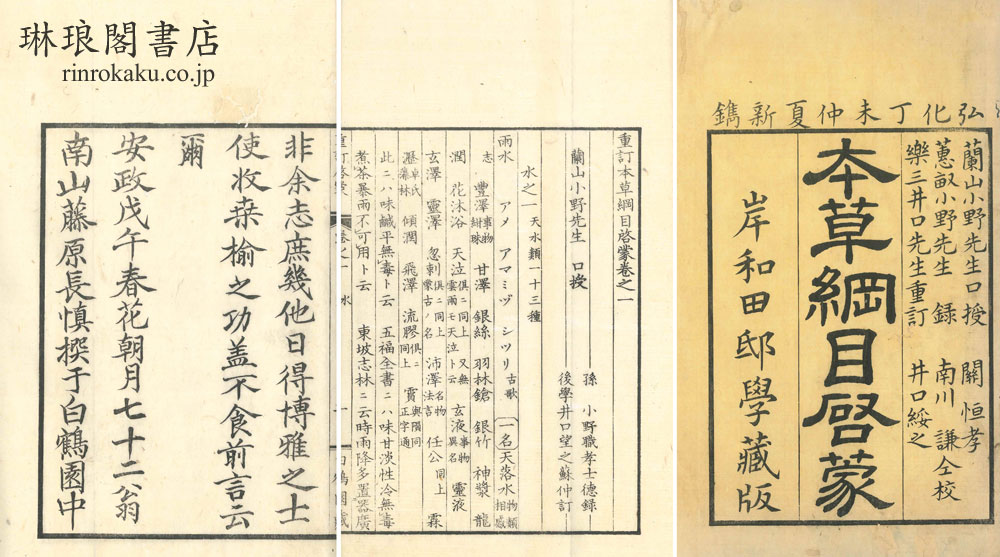 琳琅閣書店
rinrokaku.co.jp
弘化丁未仲夏新鐫
蘭山小野先生口授　關　恒孝
蕙畝小野先生　錄　南川　謙仝校
樂三井口先生重訂　井口綏之
本草綱目啓蒙
岸和田邸學藏版
重訂本草綱目啓蒙卷之一
蘭山小野先生　口授
孫　小野職孝士德錄
後學井口望之蘇仲訂
水之一　天水類一十三種
雨水　アメ　アマミヅ　シツリ古歌　一名天落水物類相感
志　豐澤事物紺珠　甘澤　銀絲　羽林鎗　銀竹　神漿　龍
潤　花沐浴　天泣俱ニ同上　又無雲而雨モ天泣ト云　玄液事物異名　靈液
玄澤　靈澤　忽剌俱ニ同上蒙古ノ名　沛澤名物法言　任公同上　霖
瀑卓氏藻林　傾潤　飛澤　流膠俱ニ同上　實與隕同正字通
此ニ八味鹹平無毒ト云　五福全書ニハ味甘淡性冷無毒
煮茶暴雨不可用ト云　東坡志林ニ云時雨降多置器廣
非余志庶幾他日得博雅之士
使收桑榆之功盖不食前言云
爾
安政戊午春花朝月七十二翁
南山藤原長愼撰于白鶴園中